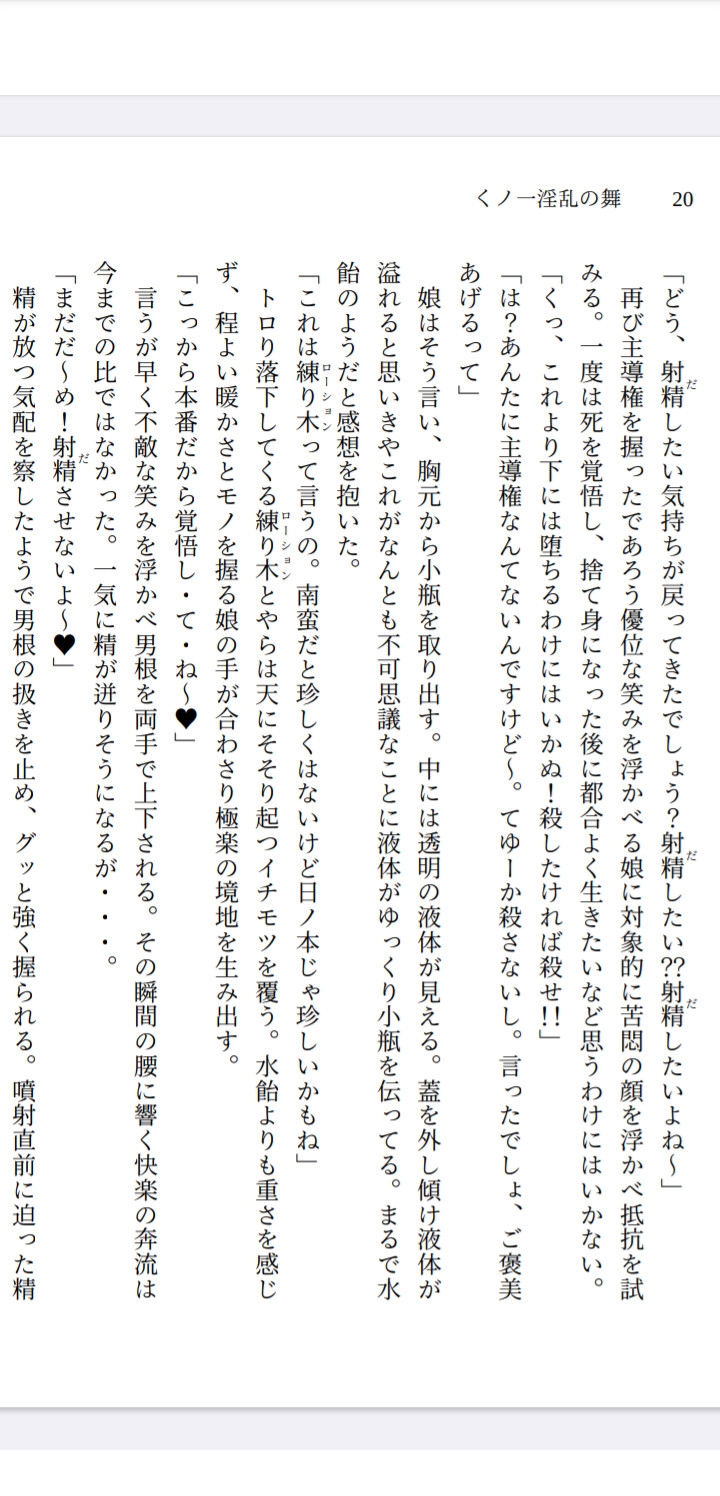 くノ一淫乱の舞 20
「どう、射精したい気持ちが戻ってきたでしょう？射精したい??射精したいよね～」
再び主導権を握ったであろう優位な笑みを浮かべる娘に対象的に苦悶の顔を浮かべ抵抗を試
みる。一度は死を覚悟し、捨て身になった後に都合よく生きたいなど思うわけにはいかない。
「くっ、これより下には堕ちるわけにはいかぬ！殺したければ殺せ!!」
「は？あんたに主導権なんてないんですけど～。てゆーか殺さないし。言ったでしょ、ご褒美
あげるって」
娘はそう言い、胸元から小瓶を取り出す。中には透明の液体が見える。蓋を外し傾け液体が
溢れると思いきやこれがなんとも不可思議なことに液体がゆっくり小瓶を伝ってる。まるで水
飴のようだと感想を抱いた。
「これは練り木って言うの。南蛮だと珍しくはないけど日ノ本じゃ珍しいかもね」
トロり落下してくる練り木とやらは天にそそり起つイチモツを覆う。水飴よりも重さを感じ
ず、程よい暖かさとモノを握る娘の手が合わさり極楽の境地を生み出す。
「こっから本番だから覚悟し・て・ね～♥」
言うが早く不敵な笑みを浮かべ男根を両手で上下される。その瞬間の腰に響く快楽の奔流は
今までの比ではなかった。一気に精が迸りそうになるが・・・。
「まだだ～め！射精させないよ～♥」
精が放つ気配を察したようで男根の扱きを止め、グッと強く握られる。噴射直前に迫った精
だ
だ
だ
ローション
ローション
だ